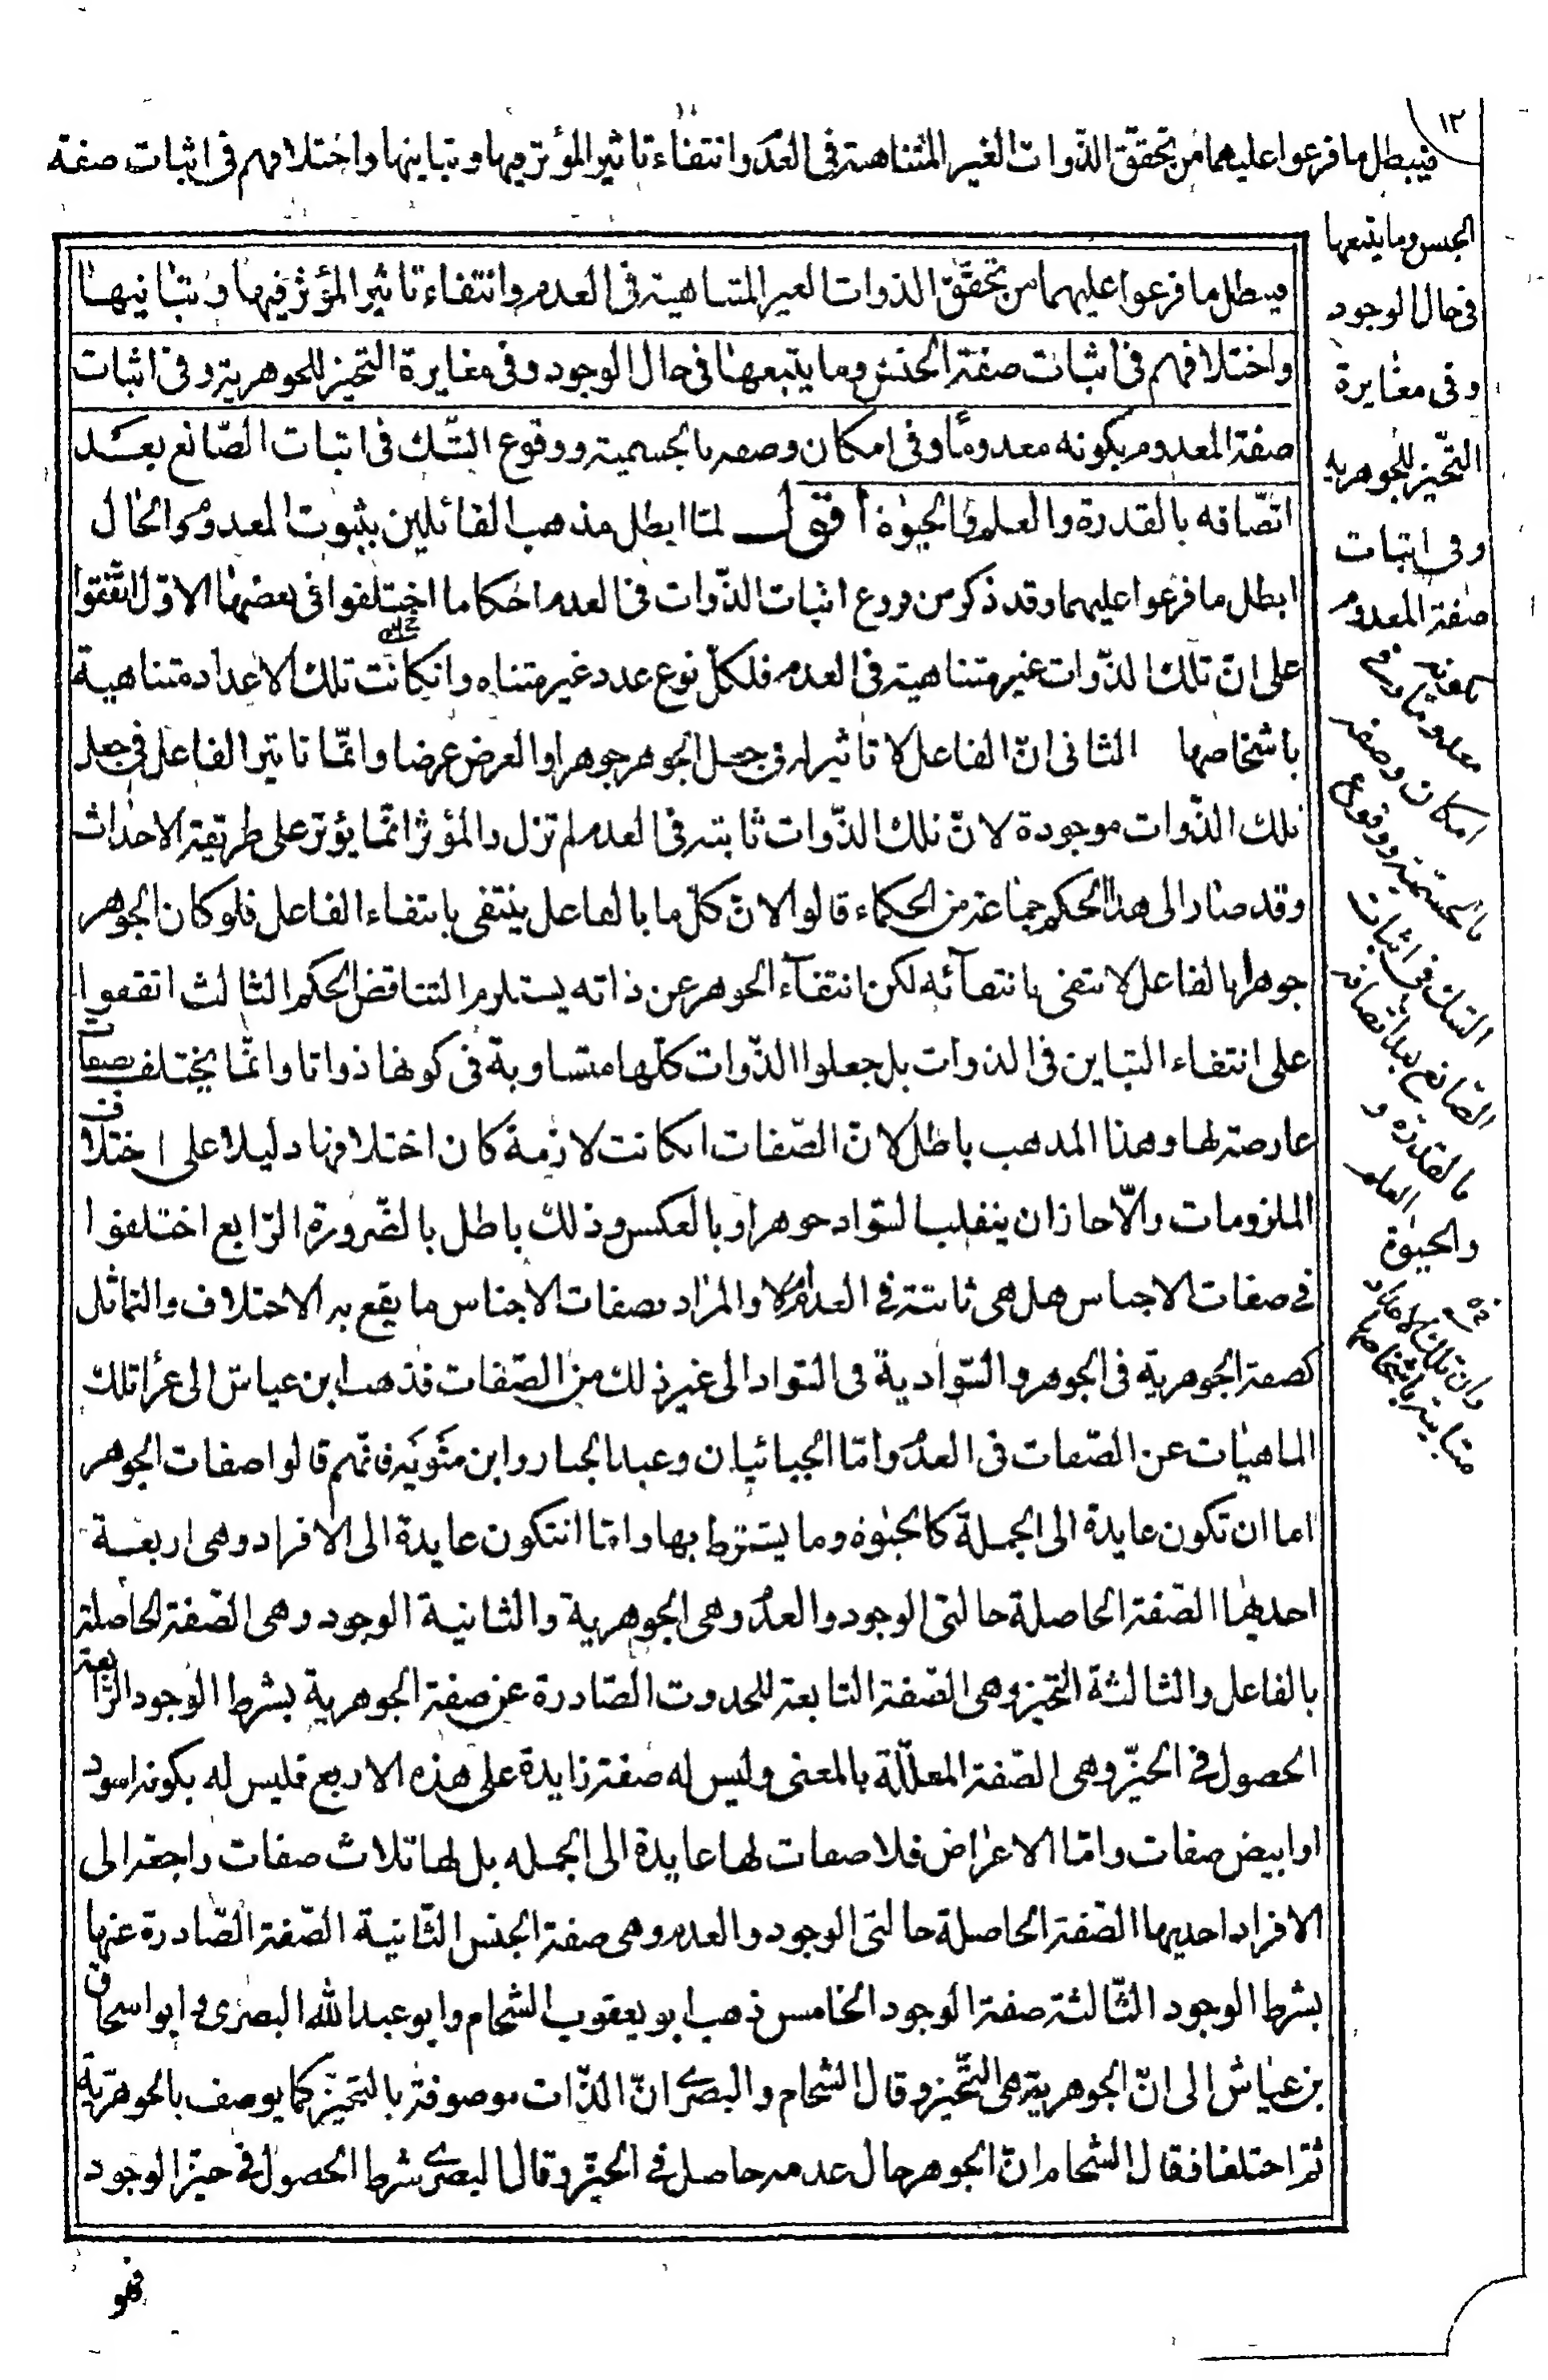 ١٢
فيبطل ما فرعوا عليهما من تحقق الذوات الغير المتناهية فى العدم وانتفاء تاثير المؤثر فيها وتباينها واختلافهم فى اثبات صفة
الجنس وما يتبعها
فى حال الوجود
وفى مغايرة
التحيز للجوهرية
وفى اثبات
صفة المعدوم
بكونه
معدوما وفى
امكان وصفه
بالجسمية ووقوع
الشك فى اثبات
الصانع بعد اتصافه
بالقدرة و
العلم
والحيوة
وان تلك الاعداد
متباينة باشخاصها
فيبطل ما فرعوا عليهما من تحقّق الذوات الغير المتناهية فى العدم وانتفاء تاثير المؤثر فيها وتباينها
واختلافهم فى اثبات صفة الجنس وما يتبعها فى حال الوجود وفى مغايرة التحيز للجوهرية وفى اثبات
صفة المعدوم بكونه معدومًا وفى امكان وصفه بالجسمية ووقوع الشك فى اثبات الصّانع بعد
اتّصافه بالقدرة والعلم والحيوة اقول لمّا ابطل مذهب القائلين بثبوت المعدوم والحال
ابطل ما فرعوا عليهما وقد ذكر من فروع اثبات الذّوات فى العدم احكاما اختلفوا فى بعضها الاوّل اتّفقوا
على انّ تلك الذّوات غير متناهية فى العدم فلكلّ نوع عدد غير متناه وانكانت تلك الاعداد متناهية
باشخاصها الثانى انّ الفاعل لا تاثير له فى جعل الجوهر جوهرا والعرض عرضا وانّما تاثير الفاعل فى جعل
تلك الذّوات موجودة لانّ تلك الذّوات ثابته فى العدم لم تزل والمؤثر انّما يؤثر على طريقة الاحداث
وقد صار الى هذا الحكم جماعة من الحكماء قالوا لانّ كلّ ما بالفاعل ينتفى بانتفاء الفاعل فلو كان الجوهر
جوهرا بالفاعل لانتفى بانتفآئه لكن انتفآء الجوهر عن ذاته يستلزم التناقض الحكم الثالث اتفقوا
على انتفاء التباين فى الذوات بل جعلوا الذّوات كلّها متساوية فى كونها ذواتا وانّما يختلف بصفات
عارضة لها وهذا المذهب باطل لانّ الصّفات انكانت لازمة كان اختلافها دليلا على اختلاف
الملزومات والّا جاز ان ينقلب السّواد جوهرا وبالعكس وذلك باطل بالضّرورة الرّابع اختلفوا
فى صفات الاجناس هل هى ثابتة فى العدم ام لا والمراد بصفات الاجناس ما يقع به الاختلاف والتماثل
كصفة الجوهرية فى الجوهر والسّوادية فى السّواد الى غير ذلك من الصّفات فذهب ابن عياش الى عرآ تلك
الماهيات عن الصّفات فى العدم وامّا الجبائيان وعبد الجبار وابن متويه فانّهم قالوا صفات الجوهر
اما ان تكون عايدة الى الجملة كالحيوة وما يشترط بها وامّا انتكون عايدة الى الافراد وهى اربعة
احديها الصّفة الحاصلة حالتى الوجود والعدم وهى الجوهرية والثانية الوجود وهى الصّفة الحاصلة
بالفاعل والثالثة التحيز وهى الصّفة التابعة للحدوث الصّادرة عن صفة الجوهرية بشرط الوجود الرّابعة
الحصول فى الحيّز وهى الصّفة المعلّلة بالمعنى وليس له صفة زايدة على هذه الاربع فليس له بكونه اسود
او ابيض صفات وامّا الاعراض فلا صفات لها عايدة الى الجمله بل لها ثلاث صفات راجعة الى
الافراد احديها الصّفة الحاصلة حالتى الوجود والعدم وهى صفة الجنس الثّانية الصّفة الصّادرة عنها
بشرط الوجود الثّالثة صفة الوجود الخامس ذهب ابو يعقوب الشحام وابو عبد الله البصرى وابو اسحاق
بن عياش الى انّ الجوهرية هى التّحيز وقال الشحام والبصرى انّ الذّات موصوفة بالتحيّز كما يوصف بالجوهريّة
ثمّ اختلفا فقال الشحام انّ الجوهر حال عدمه حاصل فى الحيّز وقال البصرى شرط الحصول فى حيز الوجود
فهو